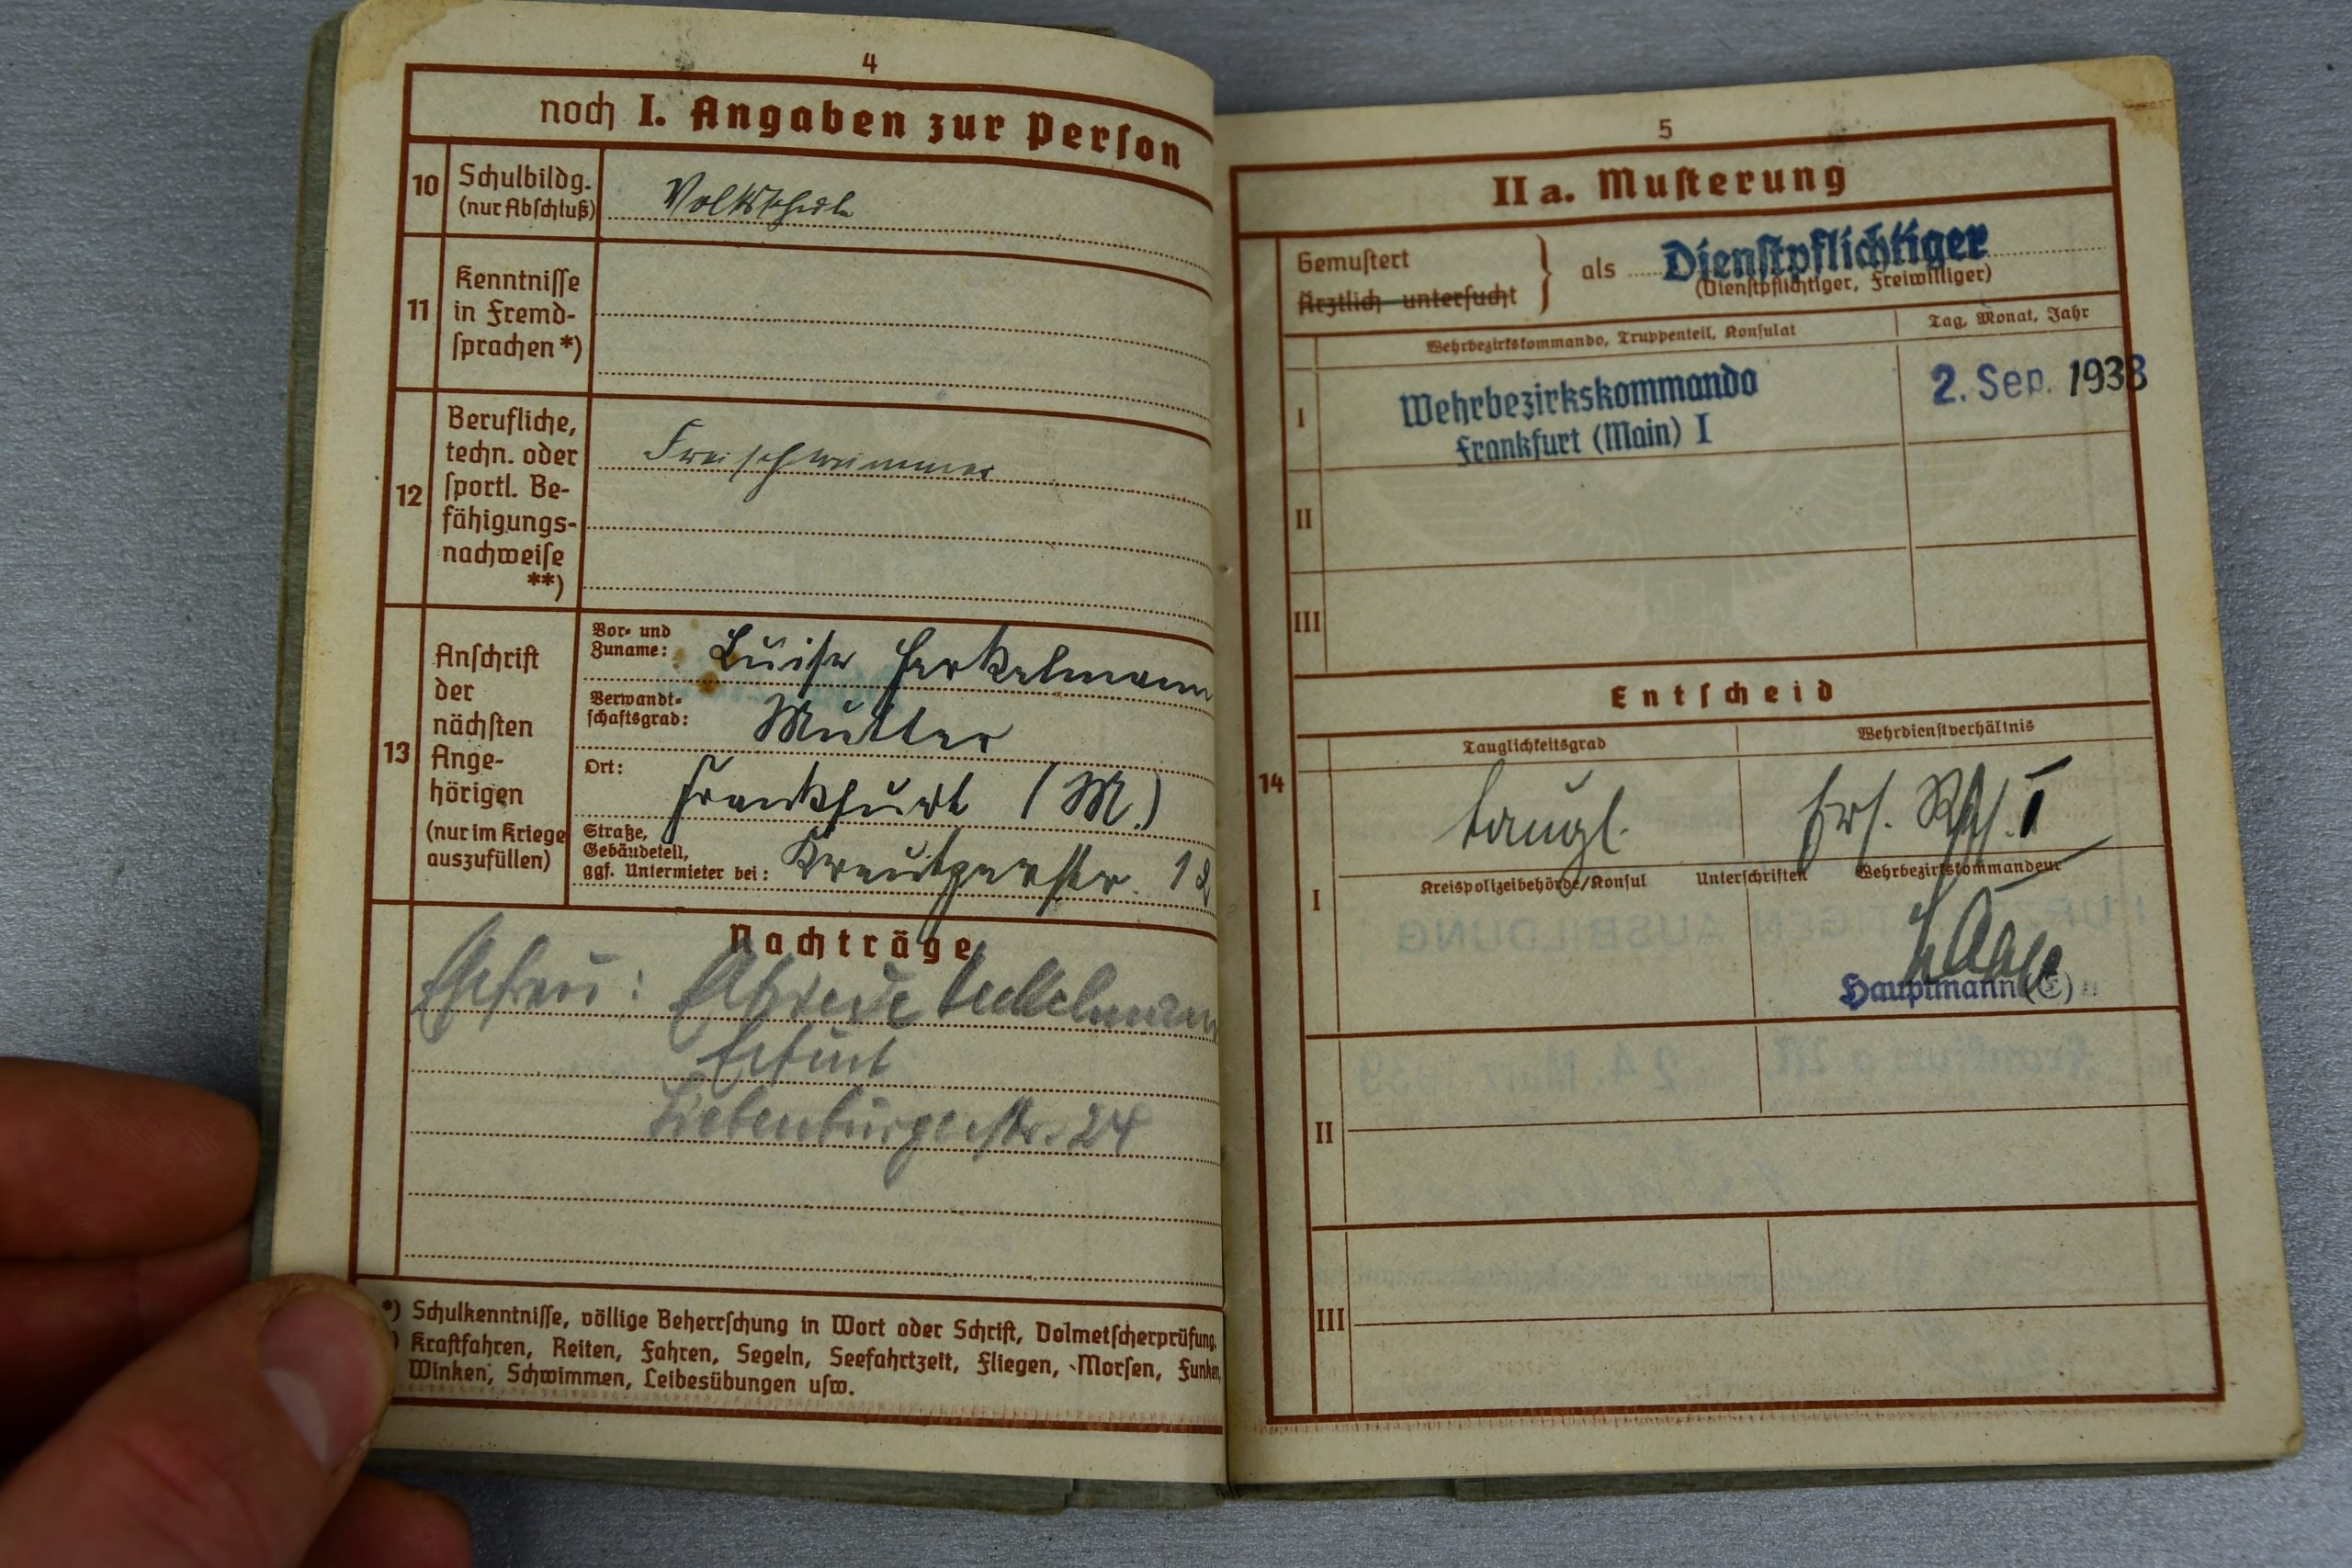 4
noch I. Angaben zur Person
10
Schulbildg.
(nur Abschluß)
Volksschule
11
Kenntnisse
in Fremd-
sprachen *)
12
Berufliche,
techn. oder
sportl. Be-
fähigungs-
nachweise
**)
Freischwimmer
13
Anschrift
der
nächsten
Ange-
hörigen
(nur im Kriege
auszufüllen)
Vor- und
Zuname:
Luise Herkelmann
Verwandt-
schaftsgrad:
Mutter
Ort:
Frankfurt (M.)
Straße,
Gebäudeteil,
ggf. Untermieter bei:
Kreutzerstr. 12
Nachträge
Ehefrau:
Erfurt
24
*) Schulkenntnisse, völlige Beherrschung in Wort oder Schrift, Dolmetscherprüfung.
) Kraftfahren, Reiten, Fahren, Segeln, Seefahrtzeit, Fliegen, Morsen, Funken,
Winken, Schwimmen, Leibesübungen usw.
5
II a. Musterung
Gemustert
Ärztlich untersucht
als
Dienstpflichtiger
(Dienstpflichtiger, Freiwilliger)
Wehrbezirkskommando, Truppenteil, Konsulat
Tag, Monat, Jahr
I
Wehrbezirkskommando
Frankfurt (Main) I
2. Sep. 1938
II
III
Entscheid
14
Tauglichkeitsgrad
Wehrdienstverhältnis
taugl.
Ers. Res. I
Kreispolizeibehörde/Konsul
Unterschriften
Wehrbezirkskommandeur
I
Hauptmann (E)
II
III